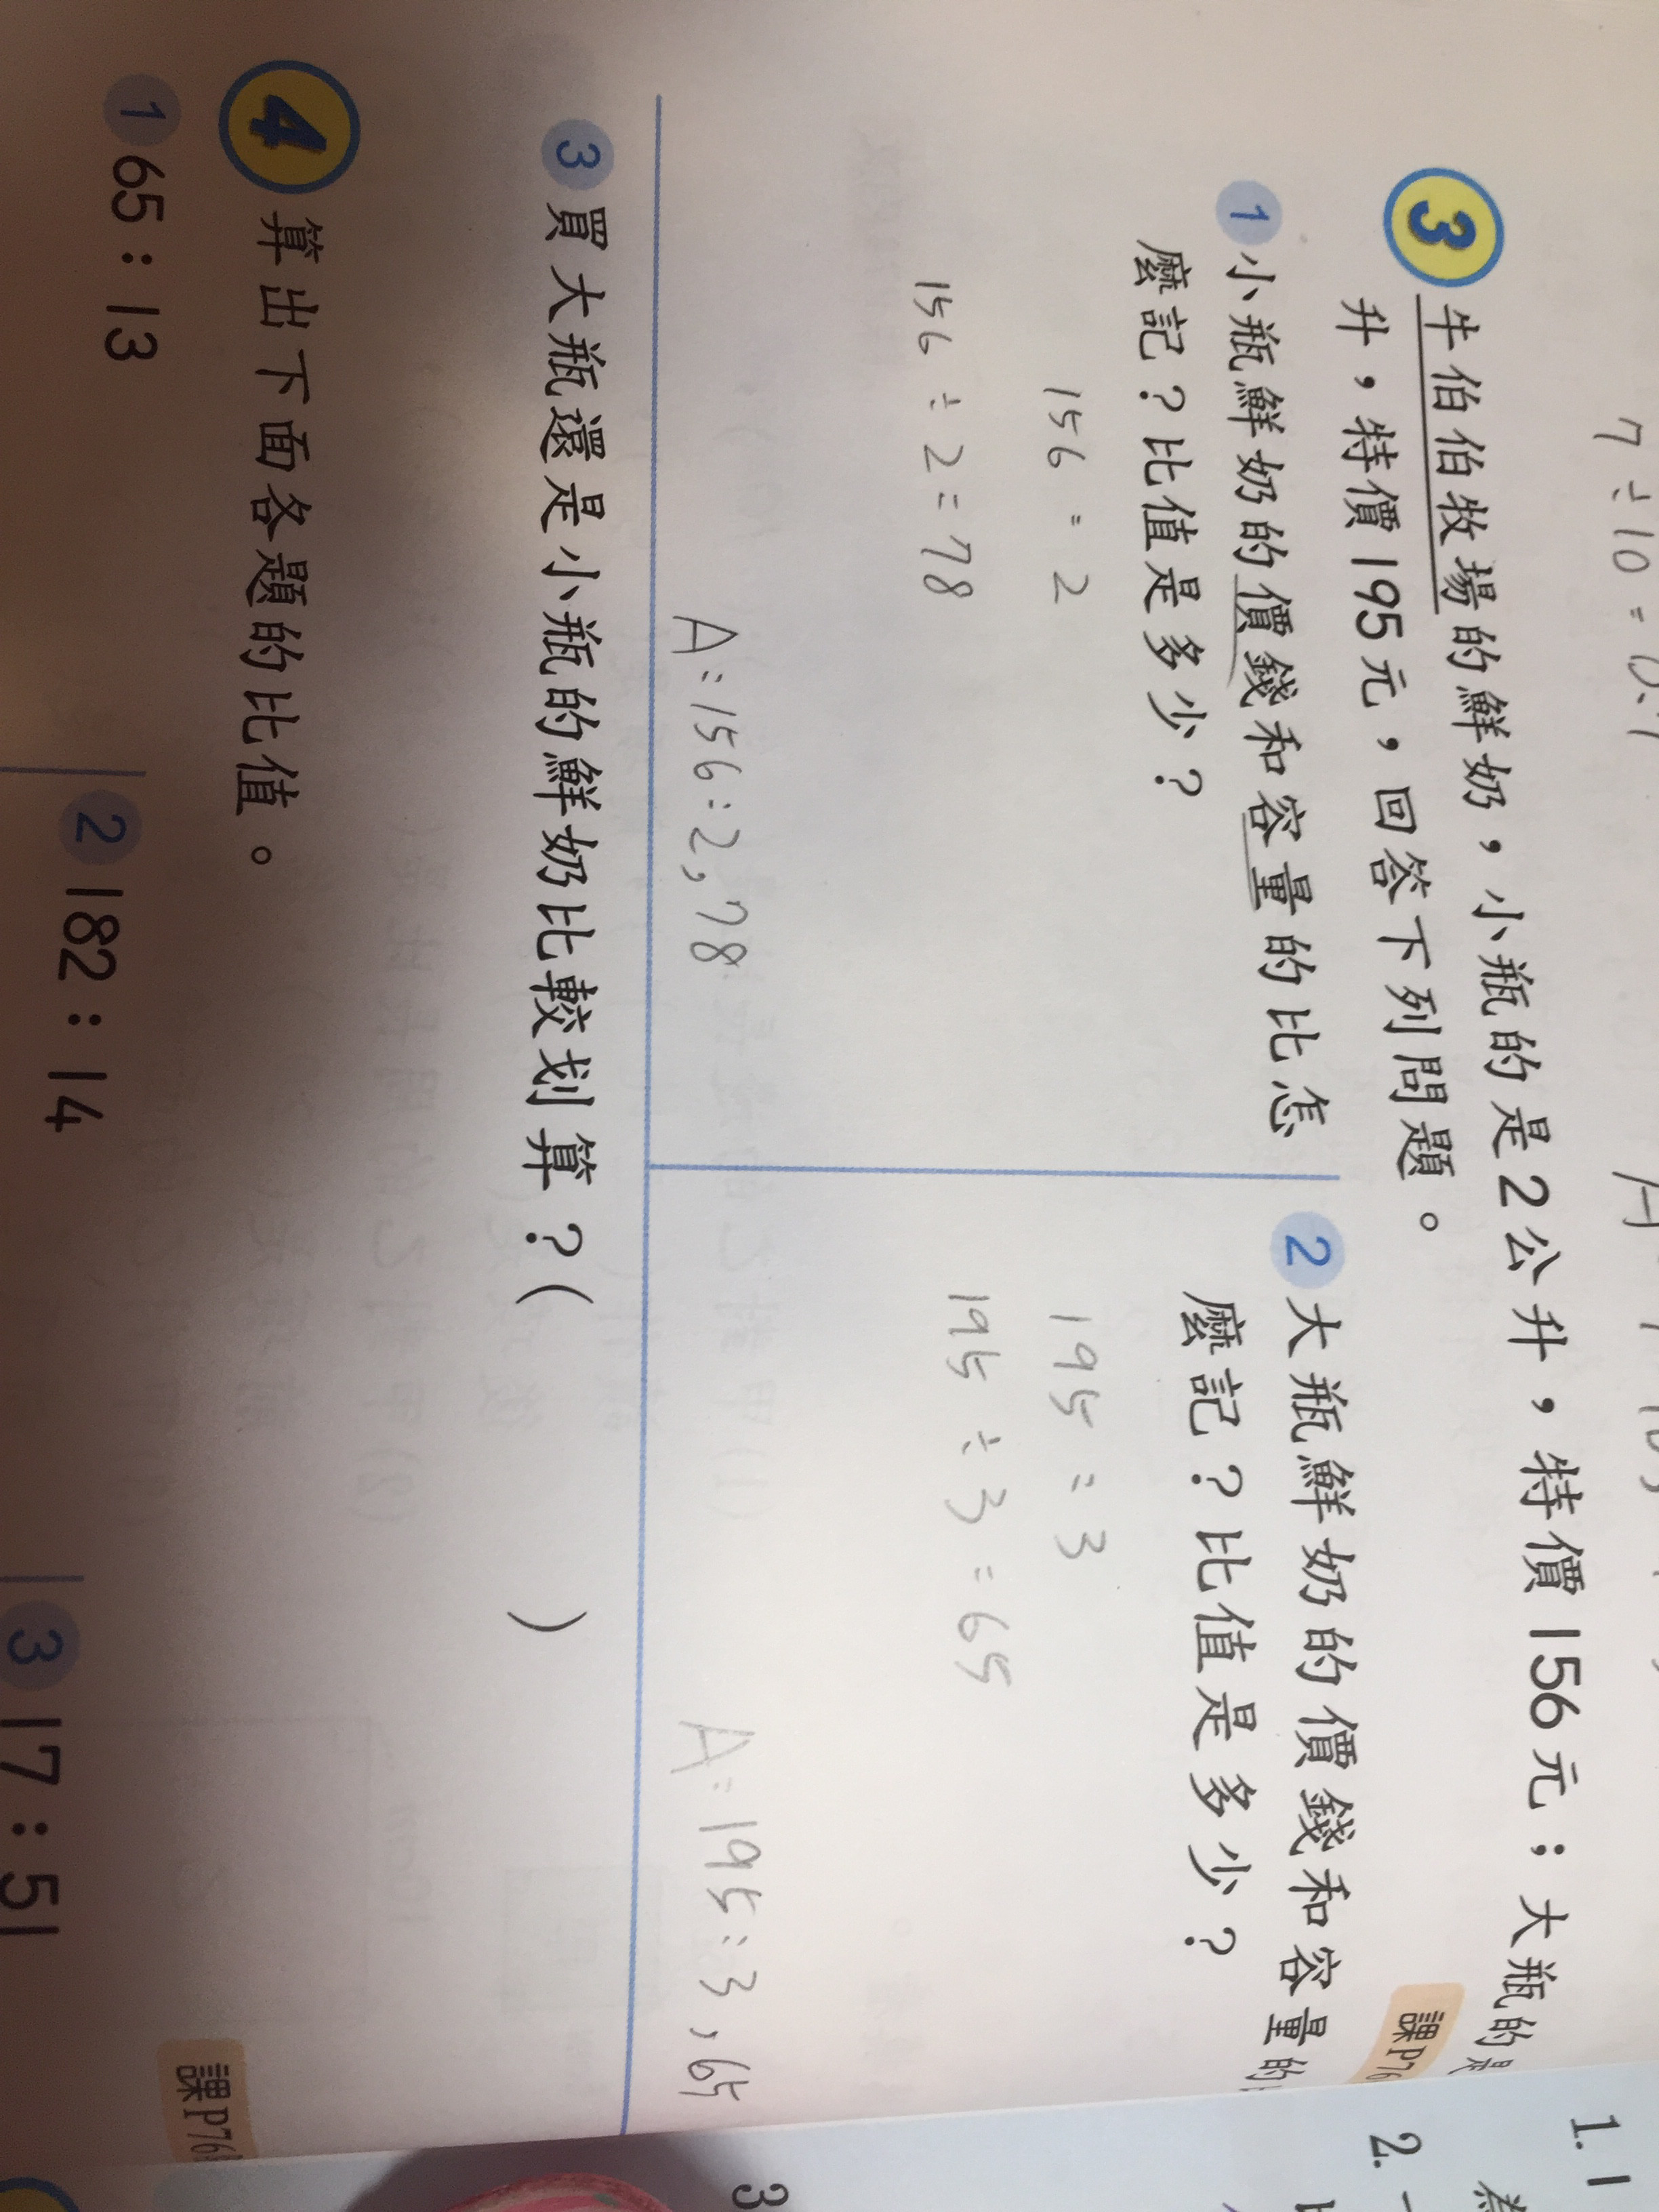 7÷10=0.7
3 牛伯伯牧場的鮮奶，小瓶的是2公升，特價156元；大瓶的是
升，特價195元，回答下列問題。
課P76
1 小瓶鮮奶的價錢和容量的比怎
麼記？比值是多少？
156：2
156÷2=78
A：156：2，78
2 大瓶鮮奶的價錢和容量的
麼記？比值是多少？
195：3
195÷3=65
A：195：3，65
3 買大瓶還是小瓶的鮮奶比較划算？（　　　）
4 算出下面各題的比值。
課P76
1 65：13
2 182：14
3 17：51
1.
2.
3